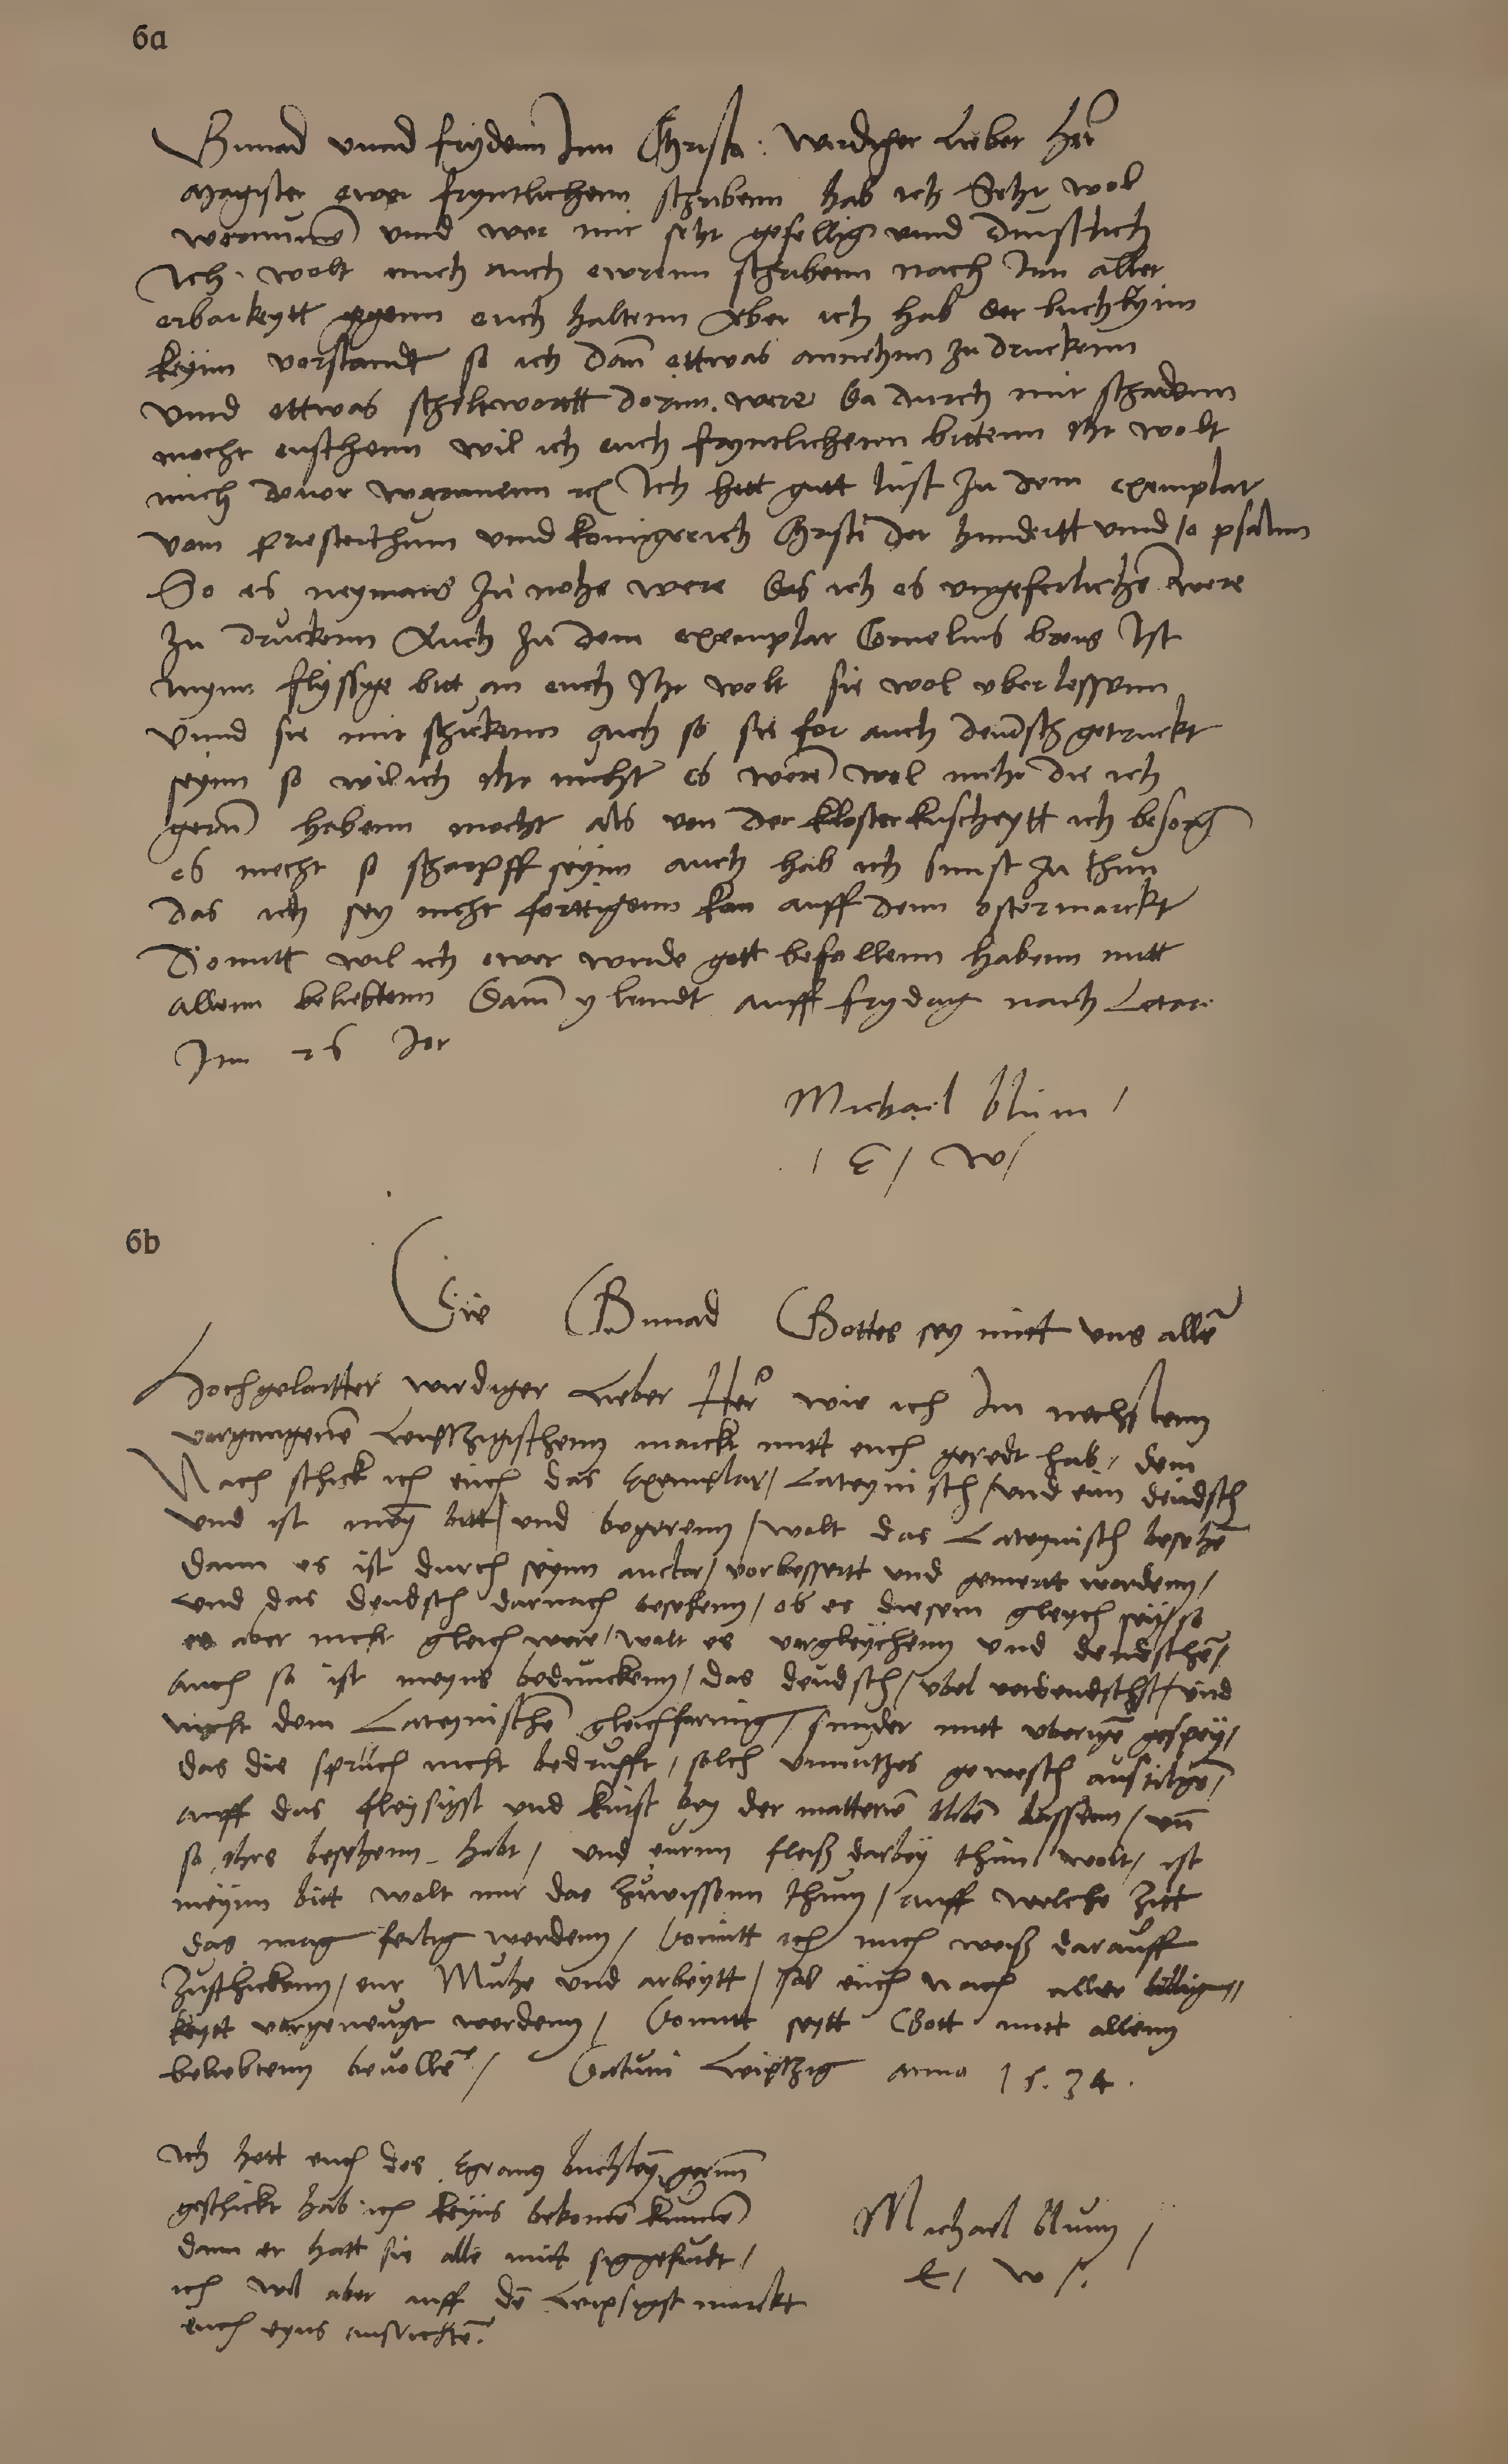 6a
Gnnad vnnd frydenn Jnn Christo: wirdiger Lieber Her
Magister ewer fryntlichenn schribenn hab ich Sehr wol
vornumē vnnd wer mir sehr gefellig vnnd dinstlich
Ich wolt mich auch ewrenn schribenn nach Jnn aller
erbarkeytt gegenn euch haltenn Aber ich hab der buchlyinn
keyinn vorstandt so ich dan ettwas annehm zu druckenn
vnnd ettwas scheltwortt dorinn were da durch mir schadenn
mocht enstehenn wil ich euch fryntlichenn bittenn Ihr wolt
mich douor warnnenn Ich hett gutt lust zu dem exemplar
vom priesterthum vnnd konigreich Christi der hundertt vnnd 10 psalmn
So es neymans zu nohe were das ich es vngeferlichē were
zu druckenn Auch zu dem exemplar Cornelius Ist
mynn flyssyge bitt an euch Ihr wolt sie wol vberlessenn
vnnd sie mir schickenn auch so sie for auch deudsch getruckt
seynn so wil ich ihr nicht es werē wol mehr die ich
gernn habenn mocht als von der klosterkuscheytt ich besorg
es mecht so scharpff seyinn auch hab ich sunst zu thun
das ich sey nicht ferttigenn kan auff denn ostermarckt
Domitt wil ich ewer wirde gott befellenn habenn mitt
allenn beliebtenn Datū ylendt auff frydag nach Letare
Jm 26 Jor
Michael blum /
/ E / W /
6b
Die Gnnad Gottes sey mitt vns allē
Hochgelartter wirdiger Lieber Her wie ich Im nechstenn
vorgangenē Leiptzigischenn marckt mitt euch geredt hab / dem
Nach schick ich euch das Exemplar / Lateynisch / vnd ein deudsch
vnd ist meȳ bitt / vnd begerenn / wolt das Lateynisch besehē
dann es ist durch seynn auctor / vorbessertt vnd gemertt wordenn /
vnd das deudsch darnach besehenn / ob es diesem gleych sey / so
es aber nicht gleich were / wolt es vorgleychenn vnd deudschē /
auch so ist meyns beduinckenn / das deudsch / vbel vordeudschst / vnd
nicht dem Lateynischē gleichformig / sunder mitt vberigē gespey /
das die spruch nicht bedrufft / solch vnnutzes gewesch austilgē /
auff das fleysigst vnd kurst bey der matterien bliben lassenn / vn̄
so ihrs besehenn habt / vnd eurnn fleiß darbey thun wolt / ist
meynn bitt wolt mir das zuwissenn thun / auff welche Zitt
das mag fertig werdenn / domitt ich mich weiß darauff
zuschickenn / eur Muhe vnd arbeytt / sol euch nach aller billig//
keytt vorgeneugt werdenn / domitt seytt Gott mitt allenn
beliebtenn beuollē / Datum Leiptzig anno 15.34.
Ich hett euch des Egranus buchleȳ gernn
geschickt hab ich keyns bekomē kunnē
dann er hatt sie alle mitt sig gefurdt /
ich wil aber auff dē Leipsigst marckt
euch eyns ausrichtē.
Michael blum /
E / W /.